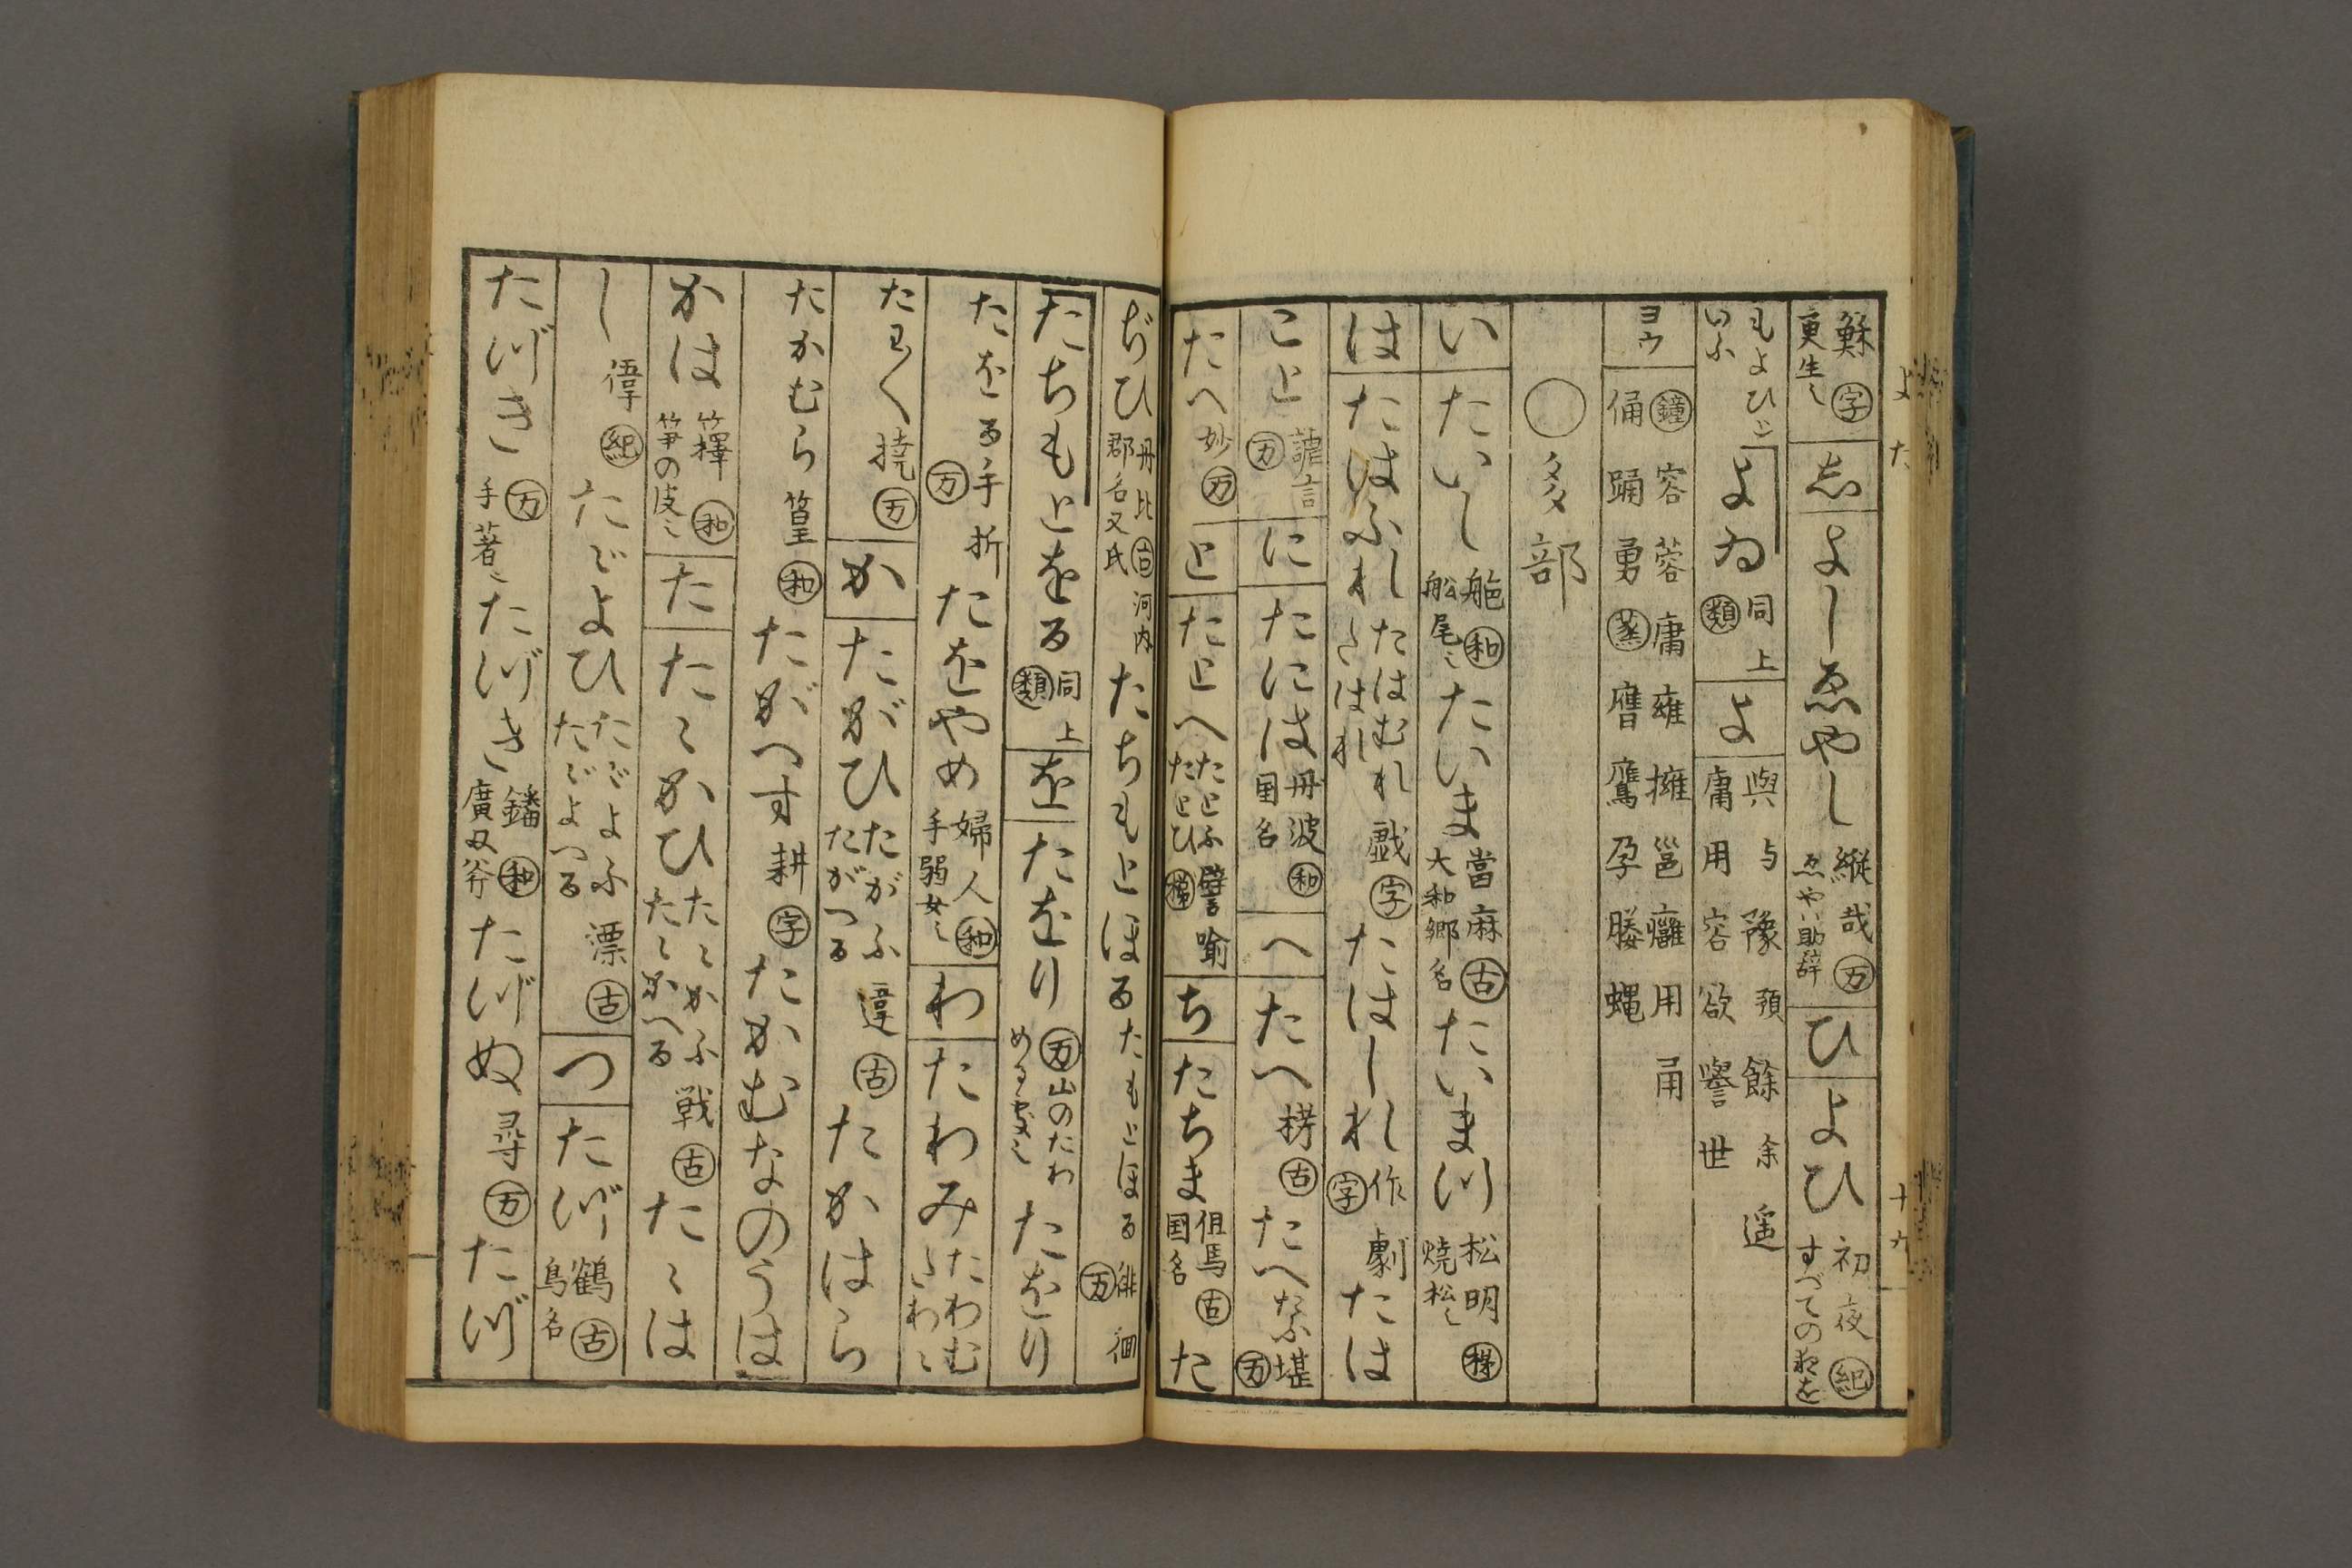 蘇 字 更生〻 志 よしゑやし 縦哉 万 ゑやハ助辞 ひ よひ 初夜 紀 すべての夜を
もよひと いふ よゐ 同上 類 よ 與 与 豫 預 餘 余 遥 庸 用 容 欲 譽 世
ヨウ 鐘 容 蓉 庸 雍 擁 邕 癰 用 甬 俑 踊 勇 蒸 膺 鷹 孕 媵 蝿
○多部
い たいし 舵 和 舩尾〻 たいま 當麻 古 大和郷名 たいまつ 松明 焼松〻
は たはふれ たはむれ たはれ 戯 字 たはしれ 作劇 字 たは
こと 謔言 万 に たには 丹波 和 国名 へ たへ 栲 古 たへ 堪 万
たへ 妙 万 と たとへ たとふ たとひ 譬喩 ち たちま 但馬 古 国名 た
ぢひ 丹比 古 河内 郡名又氏 たちもとほる たもとほる 徘徊 万
たちもとをる 同上 類 を たをり 万 山のたわ たをり
たをる 手折 万 たをやめ 婦人 和 手弱女〻 わ たわみ たわむ たわゝ
たわく 撓 万 か たがひ たがふ たがへる 違 古 たかはら
たかむら 篁 和 たがへす 耕 字 たかむなのうは
かは 籜 和 笋の皮〻 た たゝかひ たゝかふ たゝかへる 戦 古 たゝは
し 偉 紀 たゞよひ たゞよふ たゞよへる 漂 古 つ たづ 鶴 古 鳥名
たづき 万 手著〻 たづき 鐇 和 廣刄斧 たづぬ 尋 万 たづ
よ た
十九